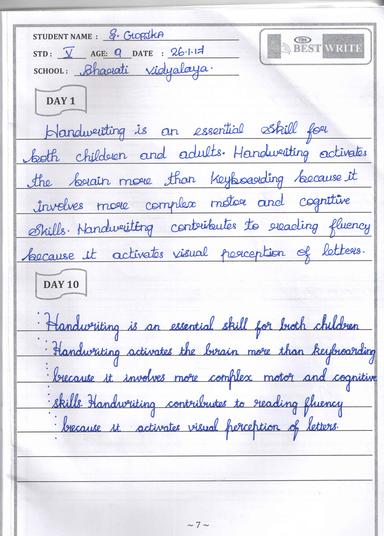 STUDENT NAME : G. GLORSKA
STD : V AGE: 9 DATE : 26.1.17
SCHOOL : Bharati Vidyalaya.
The BEST WRITE
DAY 1
Handwriting is an essential skill for
both children and adults. Handwriting activates
the brain more than keyboarding because it
involves more complex motor and cognitive
skills. Handwriting contributes to reading fluency
because it activates visual perception of letters.
DAY 10
Handwriting is an essential skill for both children
Handwriting activates the brain more than keyboarding
because it involves more complex motor and cognitive
skills. Handwriting contributes to reading fluency
because it activates visual perception of letters.
~ 7 ~